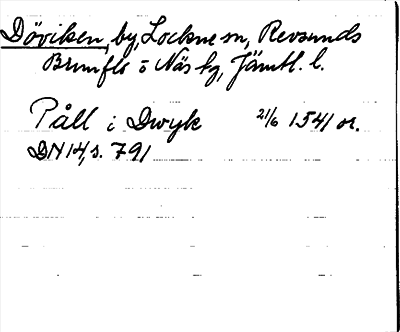 Döviken, by, Lockne sn, Revsunds
Brunflo o Näs tg, Jämtl. l.
Påll i Dwyk 21/6 1541 or.
DN 14, s. 791